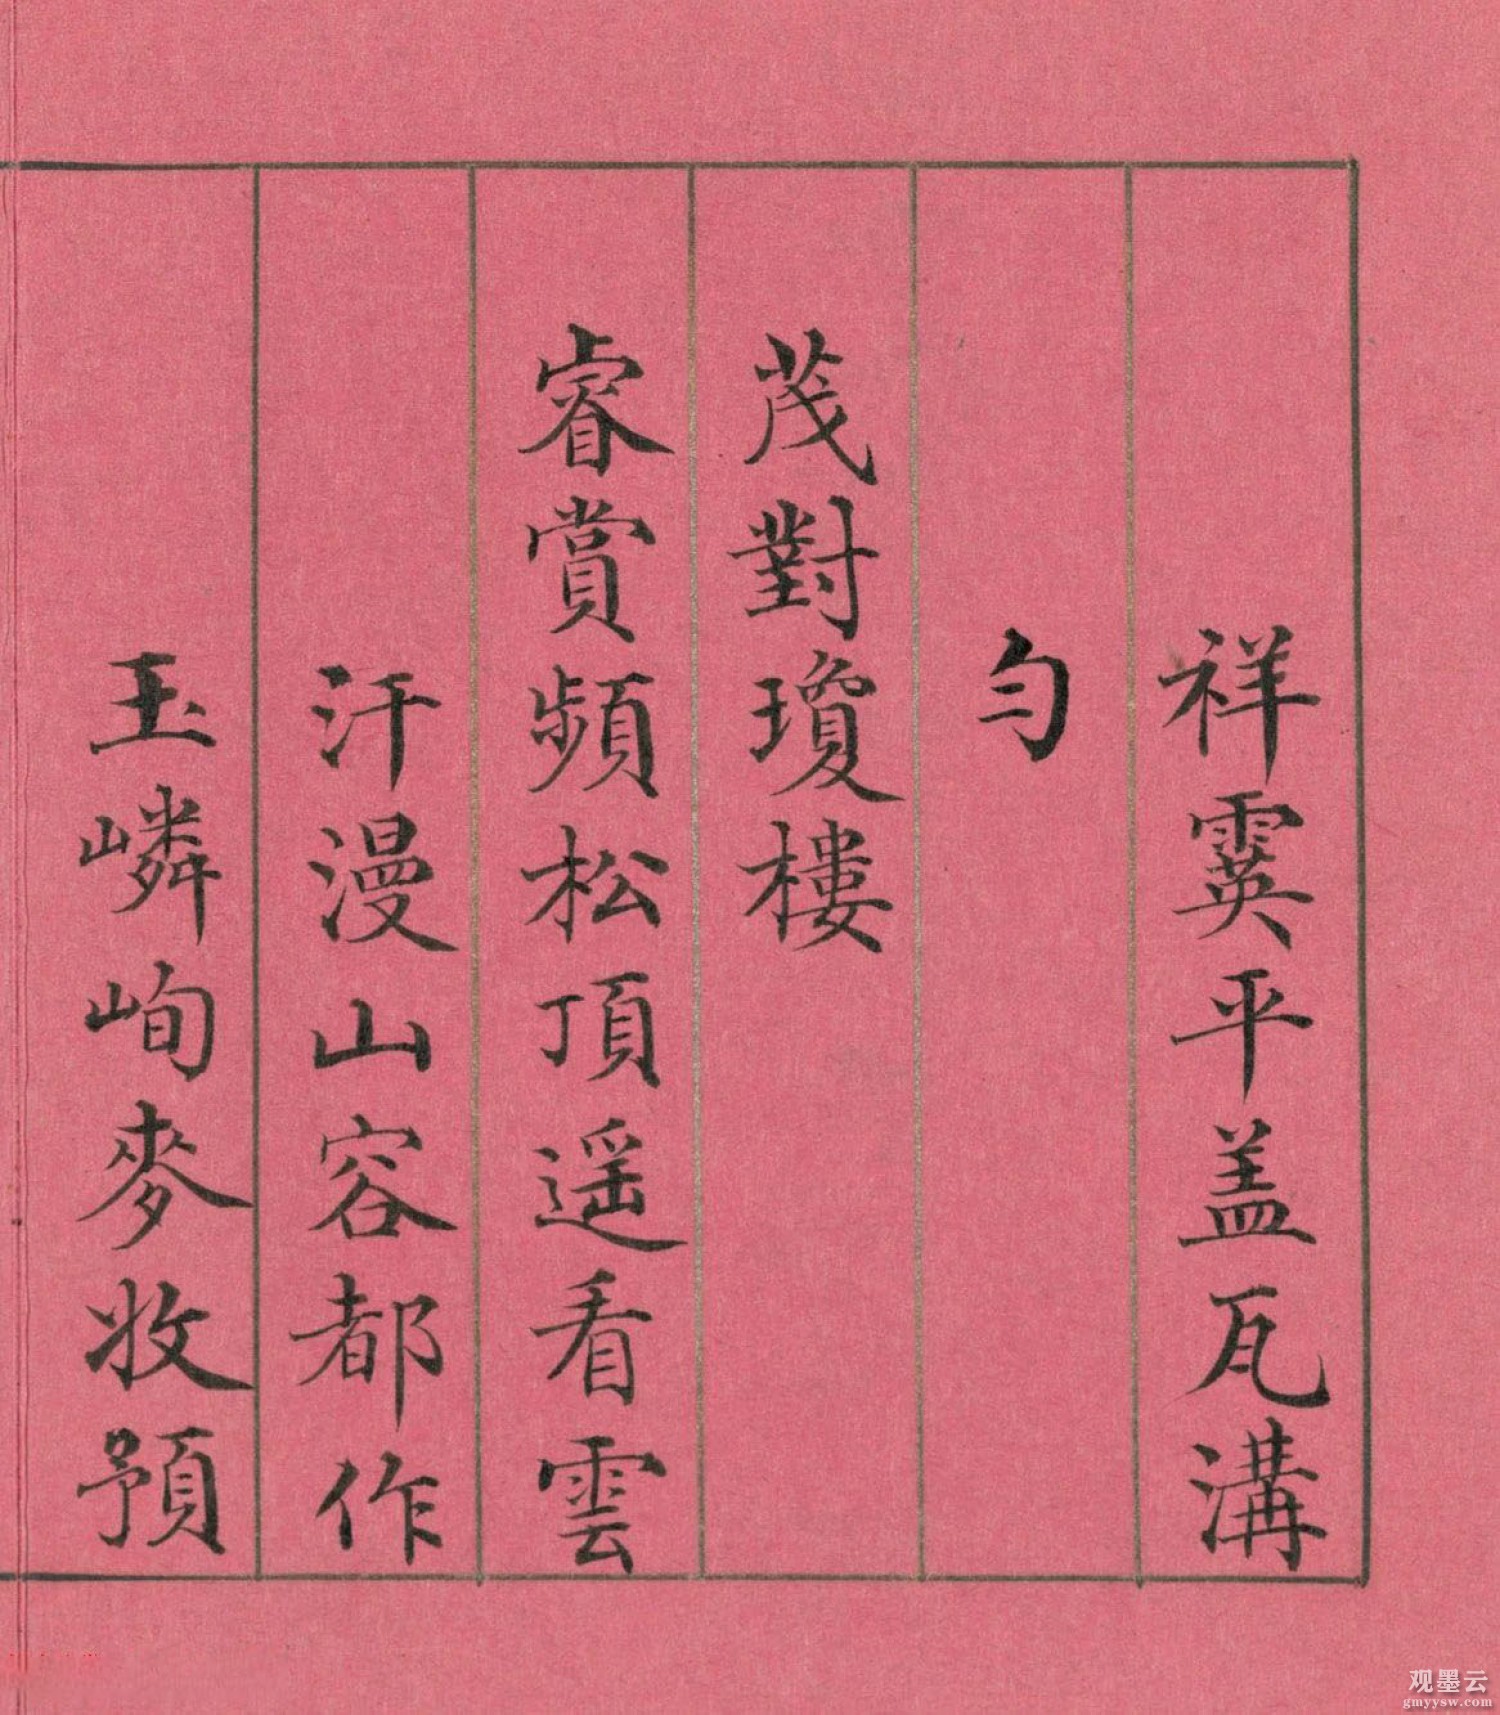 祥霙平盖瓦溝
勻
茂對瓊樓
睿賞頻松頂遥看雲
汗漫山容都作
玉嶙峋麥收預
观墨云
gmyysw.com